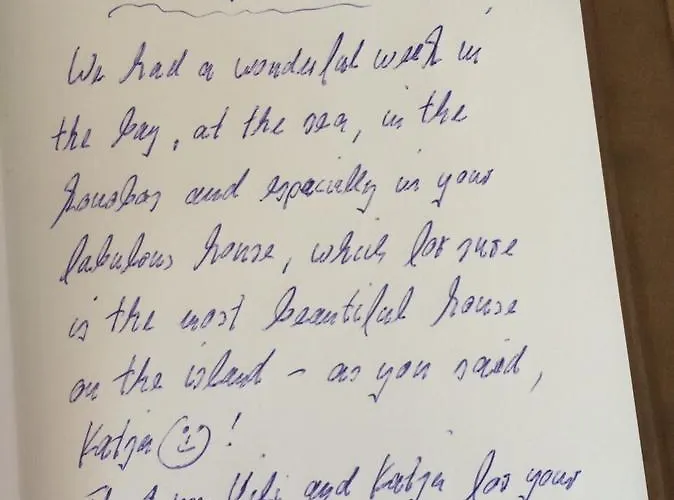 We had a wonderful week in
the bay, at the sea, in the
konobas and especially in your
fabulous house, which for sure
is the most beautiful house
on the island - as you said,
Katja ☺!
and Katja for your